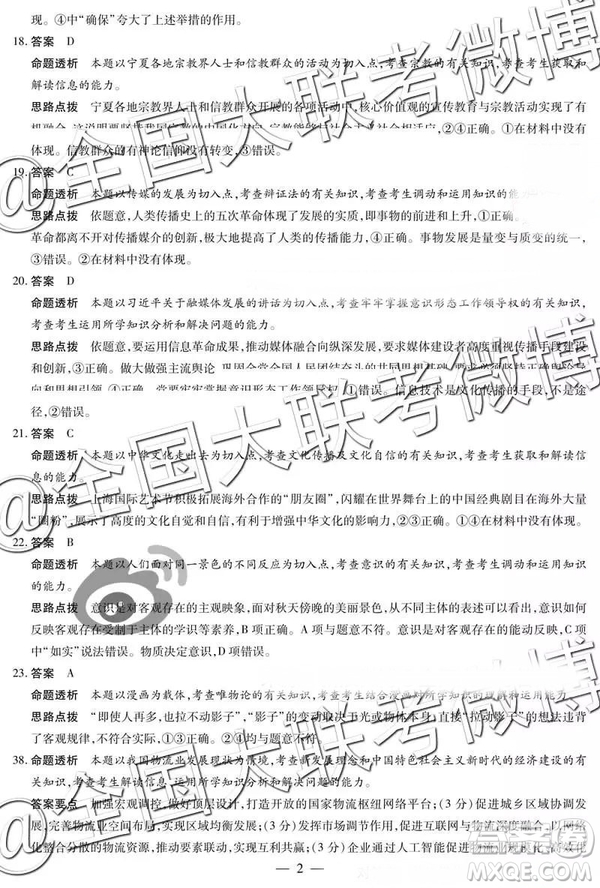 现。④中“确保”夸大了上述举措的作用。
18. 答案 D
命题透析 本题以宁夏各地宗教界人士和信教群众的活动为切入点,考查宗教的有关知识,考查考生获取和
解读信息的能力。
思路点拨 宁夏各地宗教界人士和信教群众开展的各项活动中,核心价值观的宣传教育与宗教活动实现了有
体现。信教群众的有神论信仰没有转变,③错误。
19. 答案 C
命题透析 本题以传媒的发展为切入点,考查辩证法的有关知识,考查考生调动和运用知识的能力。
思路点拨 依题意,人类传播史上的五次革命体现了发展的实质,即事物的前进和上升,①正确。
革命都离不开对传播媒介的创新,极大地提高了人类的传播能力,④正确。事物发展是量变与质变的统一,③
错误。②在材料中没有体现。
20. 答案 D
命题透析 本题以习近平关于融媒体发展的讲话为切入点,考查牢牢掌握意识形态工作领导权的有关知识,
考查考生运用所学知识分析和解决问题的能力。
思路点拨 依题意,要运用信息革命成果,推动媒体融合向纵深发展,要求媒体建设者高度重视传播手段建设
和创新,③正确。做大做强主流舆论,巩固全党全国人民团结奋斗的共同思想基础,
向和思想引领,④正确。党要牢牢掌握意识形态工作领导权,①错误。信息技术是文化传播的手段,不是途
径,②错误。
21. 答案 C
命题透析 本题以中华文化走出去为切入点,考查文化传播及文化自信的有关知识,考查考生获取和解读信
息的能力。
思路点拨 上海国际艺术节积极拓展海外合作的“朋友圈”,闪耀在世界舞台上的中国经典剧目在海外大量
“圈粉”,展示了高度的文化自觉和文化自信,有利于增强中华文化的影响力,②③正确。①④在材料中没有体现。
22. 答案 B
命题透析 本题以人们面对同一景色的不同反应为切入点,考查意识的有关知识,考查考生调动和运用知识
的能力。
思路点拨 意识是对客观存在的主观映象,面对秋天傍晚的美丽景色,从不同主体的表述可以看出意识如何
反映客观存在受制于主体的学识等素养,B项当选。A项与题意不符。意识是对客观存在的能动反映,C项
中“如实”说法错误。物质决定意识,D项错误。
23. 答案 A
命题透析 本题以漫画为载体,考查唯物论的有关知识,考查考生结合漫画对所学知识的理解和运用能力。
思路点拨 “即使人再多,也拉不动影子”,“影子”的变动取决于光或物体本身,直接“拉动影子”的想法违背
了客观规律,不符合实际,①②正确。③④与题意不符。
38. 命题透析 本题以我国物流业发展现状为情境,考查市场资源配置和中国特色社会主义新时代的经济建设的有
关知识,考查考生解读信息、运用所学知识分析和解决问题的能力。
答案要点 加强宏观调控,做好顶层设计,打造开放的国家物流枢纽网络平台;(3分)促进城乡区域协调发
展,完善物流业空间布局,实现区域物流均衡发展;(3分)发挥市场调节作用,促进互联网与物流深度融合,以网络
化整合分散的物流资源,推动实现互利共赢;(3分)企业通过人工智能促进物流
— 2 —
@全国大联考微博
@全国大联考微博
@全国大联考微博